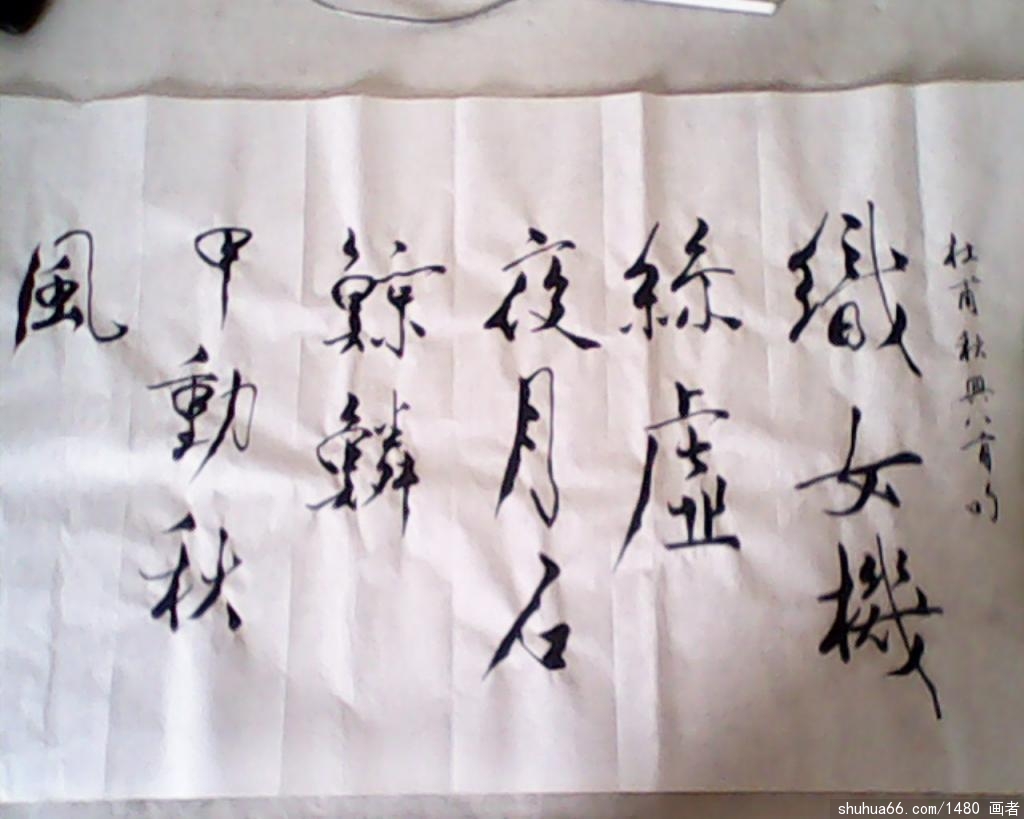 杜甫秋興八首句
織女機
絲虛
夜月石
鯨鱗
甲動秋
風
shuhua66.com/1480 画者